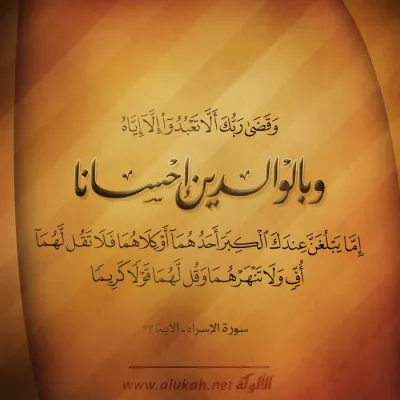 وَقَضَىٰ رَبُّكَ أَلَّا تَعْبُدُوٓا۟ إِلَّآ إِيَّاهُ
وبالوالدين إحسانا
إِمَّا يَبْلُغَنَّ عِندَكَ ٱلْكِبَرَ أَحَدُهُمَآ أَوْ كِلَاهُمَا فَلَا تَقُل لَّهُمَآ
أُفٍّ وَلَا تَنْهَرْهُمَا وَقُل لَّهُمَا قَوْلًا كَرِيمًا
سورة الإسراء - الآية ٢٣
www.alukah.net الألوكة